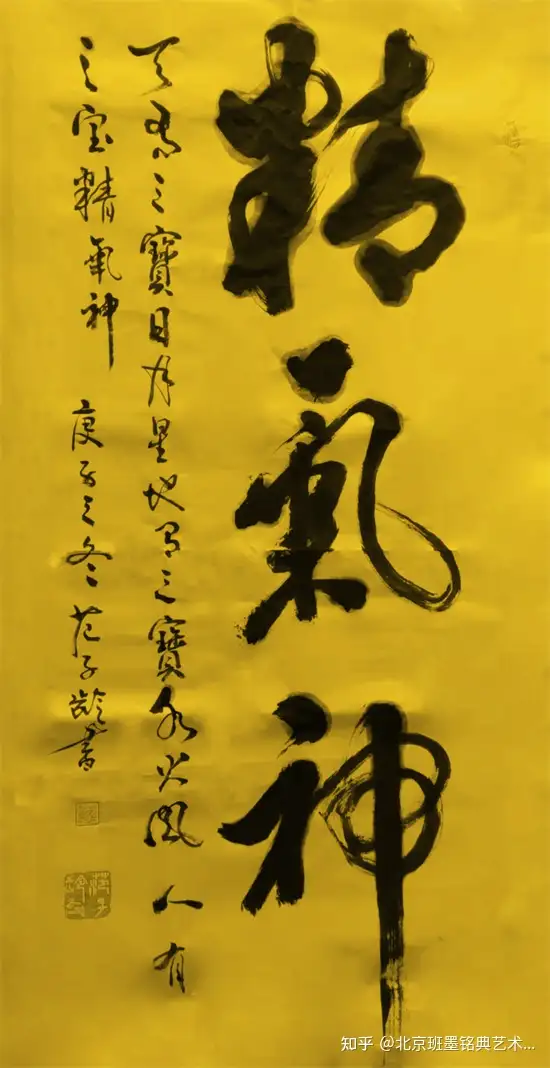 精氣神
天有三寶日月星地有三寶水火風人有
三宝精氣神
庚子之冬范子龄書
知乎 @北京班墨铭典艺术...